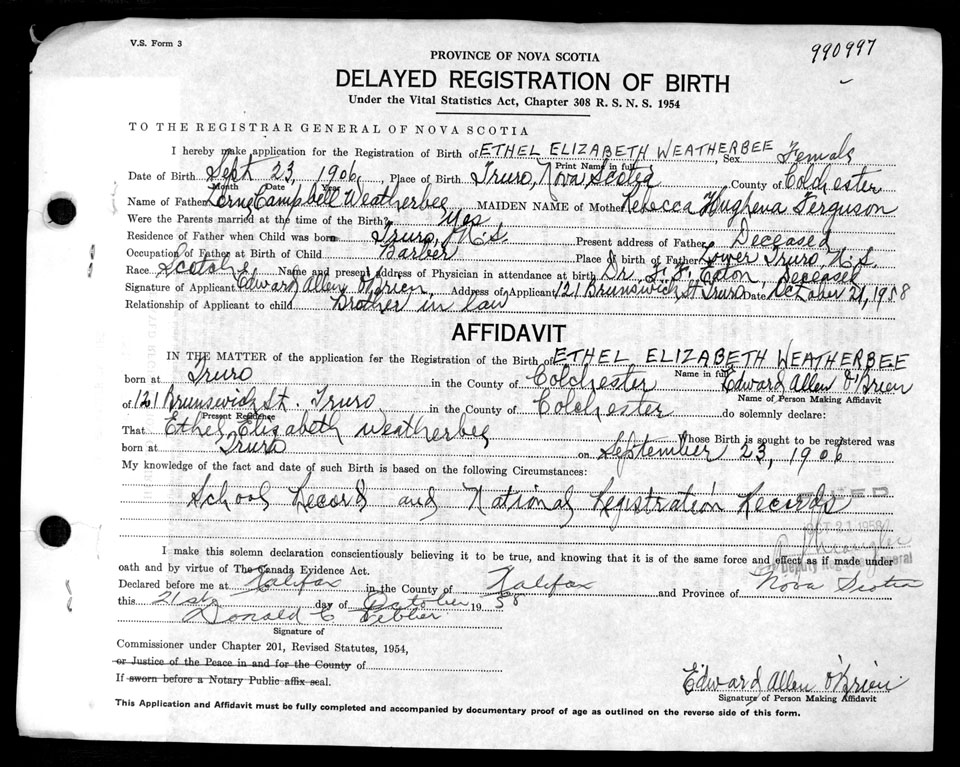 V.S. Form 3
990997
PROVINCE OF NOVA SCOTIA
DELAYED REGISTRATION OF BIRTH
Under the Vital Statistics Act, Chapter 308 R. S. N. S. 1954
TO THE REGISTRAR GENERAL OF NOVA SCOTIA
I hereby make application for the Registration of Birth of ETHEL ELIZABETH WEATHERBEE, Sex Female
Print Name in full
Date of Birth Sept 23, 1906, Place of Birth Truro, Nova Scotia County of Colchester
Month Date Year
Name of Father Lorne Campbell Weatherbee MAIDEN NAME of Mother Rebecca Hughena Ferguson
Were the Parents married at the time of the Birth? Yes
Residence of Father when Child was born Truro, N.S. Present address of Father Deceased
Occupation of Father at Birth of Child Barber Place of birth of Father Lower Truro N.S.
Race Scotch Name and present address of Physician in attendance at birth Dr. F. F. Eaton, Deceased
Signature of Applicant Edward Allen O'Brien Address of Applicant 121 Brunswick St Truro Date October 21, 1958
Relationship of Applicant to child Brother in law
AFFIDAVIT
IN THE MATTER of the application for the Registration of the Birth of ETHEL ELIZABETH WEATHERBEE
Name in full
born at Truro in the County of Colchester Edward Allen O'Brien
Name of Person Making Affidavit
of 121 Brunswick St. Truro in the County of Colchester do solemnly declare:
Present Residence
That Ethel Elizabeth Weatherbee Whose Birth is sought to be registered was
born at Truro on September 23, 1906
My knowledge of the fact and date of such Birth is based on the following Circumstances:
School Record and National Registration Records
OCT 21 1958
I make this solemn declaration conscientiously believing it to be true, and knowing that it is of the same force and effect as if made under
oath and by virtue of The Canada Evidence Act.
Deputy General
Declared before me at Halifax in the County of Halifax and Province of Nova Scotia
this 21st day of October 19 58
Donald C
Signature of
Commissioner under Chapter 201, Revised Statutes, 1954,
or Justice of the Peace in and for the County of
If sworn before a Notary Public affix seal.
Edward Allen O'Brien
Signature of Person Making Affidavit
This Application and Affidavit must be fully completed and accompanied by documentary proof of age as outlined on the reverse side of this form.